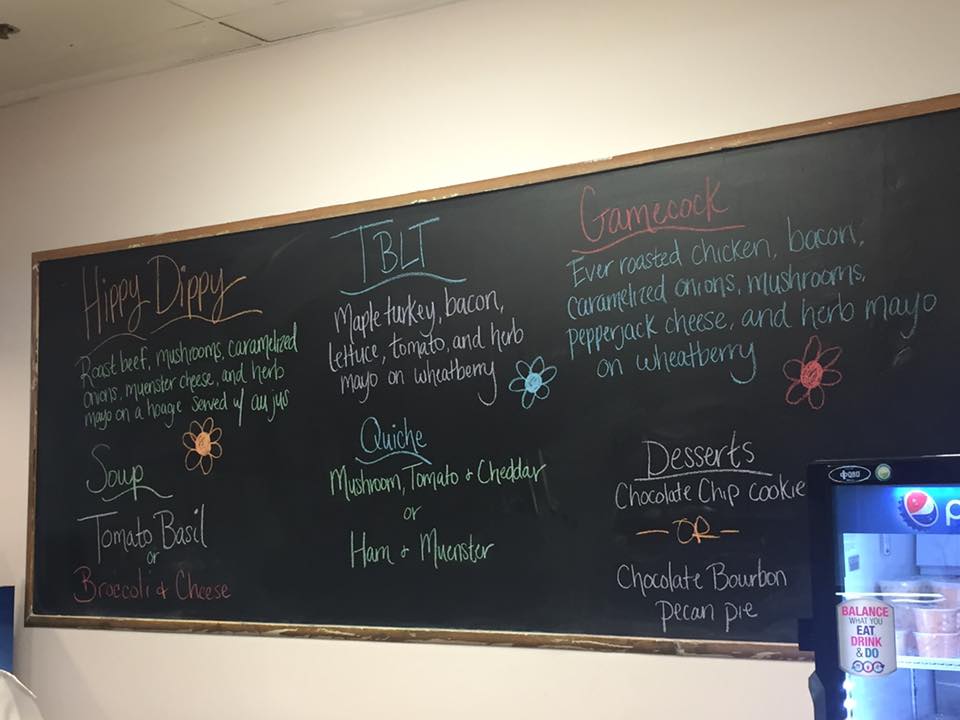 Hippy Dippy
Roast beef, mushrooms, caramelized
onions, muenster cheese, and herb
mayo on a hoagie served w/ au jus
Soup
Tomato Basil
or
Broccoli & Cheese
TBLT
Maple turkey, bacon,
lettuce, tomato, and herb
mayo on wheatberry
Quiche
Mushroom, Tomato & Cheddar
or
Ham & Muenster
Gamecock
Ever roasted chicken, bacon,
caramelized onions, mushrooms,
pepperjack cheese, and herb mayo
on wheatberry
Desserts
Chocolate Chip Cookie
- OR -
Chocolate Bourbon
Pecan pie
BALANCE
WHAT YOU
EAT
DRINK
& DO